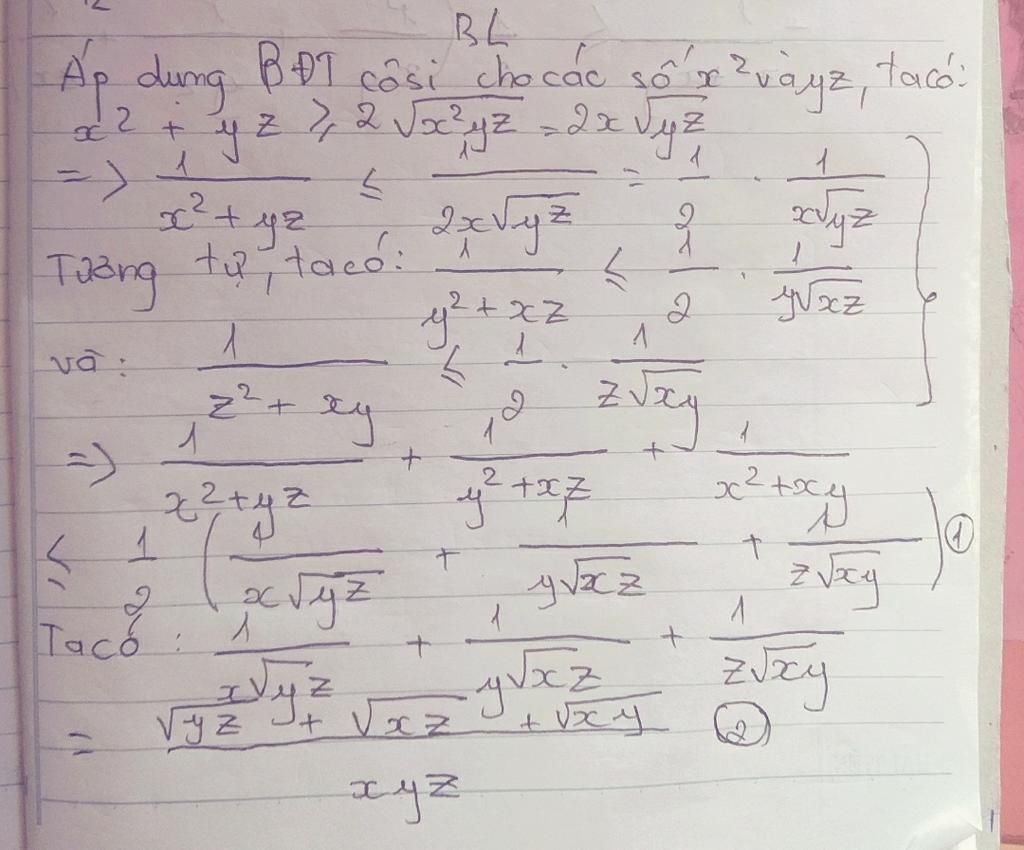 BL
Áp dụng BĐT côsi cho các số x² và yz, ta có:
x² + yz ≥ 2√(x²yz) = 2x√(yz)
=> 1/(x² + yz) ≤ 1/(2x√(yz)) = 1/2 . 1/(x√(yz))
Tương tự, ta có: 1/(y² + xz) ≤ 1/2 . 1/(y√(xz))
và: 1/(z² + xy) ≤ 1/2 . 1/(z√(xy))
=> 1/(x² + yz) + 1/(y² + xz) + 1/(x² + xy)
≤ 1/2 (1/(x√(yz)) + 1/(y√(xz)) + 1/(z√(xy))) ①
Ta có: 1/(x√(yz)) + 1/(y√(xz)) + 1/(z√(xy))
= (√(yz) + √(xz) + √(xy))/(xyz) ②